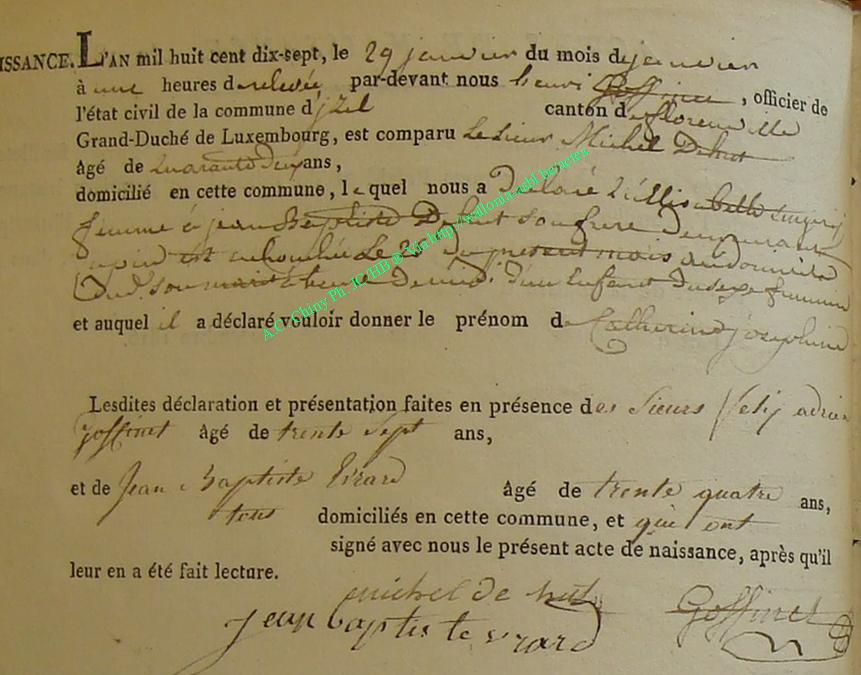 ISSANCE. L'AN mil huit cent dix-sept, le 29 janvier du mois de janvier
à une heures de relevée par-devant nous henri Goffinet, officier de
l'état civil de la commune d'jzel canton de florenville
Grand-Duché de Luxembourg, est comparu Le Sieur Michel Dehut
âgé de quarante deux ans,
domicilié en cette commune, lequel nous a Déclaré
femme à jean Baptiste Dehut son frere
est accouchée Le du present mois
son d'un Enfant du sexe feminin
et auquel il a déclaré vouloir donner le prénom de Catherine josephine
Lesdites déclaration et présentation faites en présence des Sieurs felix adrien
Goffinet âgé de trente sept ans,
et de Jean Baptiste Evrard âgé de trente quatre ans,
tous domiciliés en cette commune, et qui ont
signé avec nous le présent acte de naissance, après qu'il
leur en a été fait lecture.
michel de hut Goffinet
jean baptiste evrard
A.C. Chiny Ph. JC HB @ Via http://wallonia.asbl.be/actes